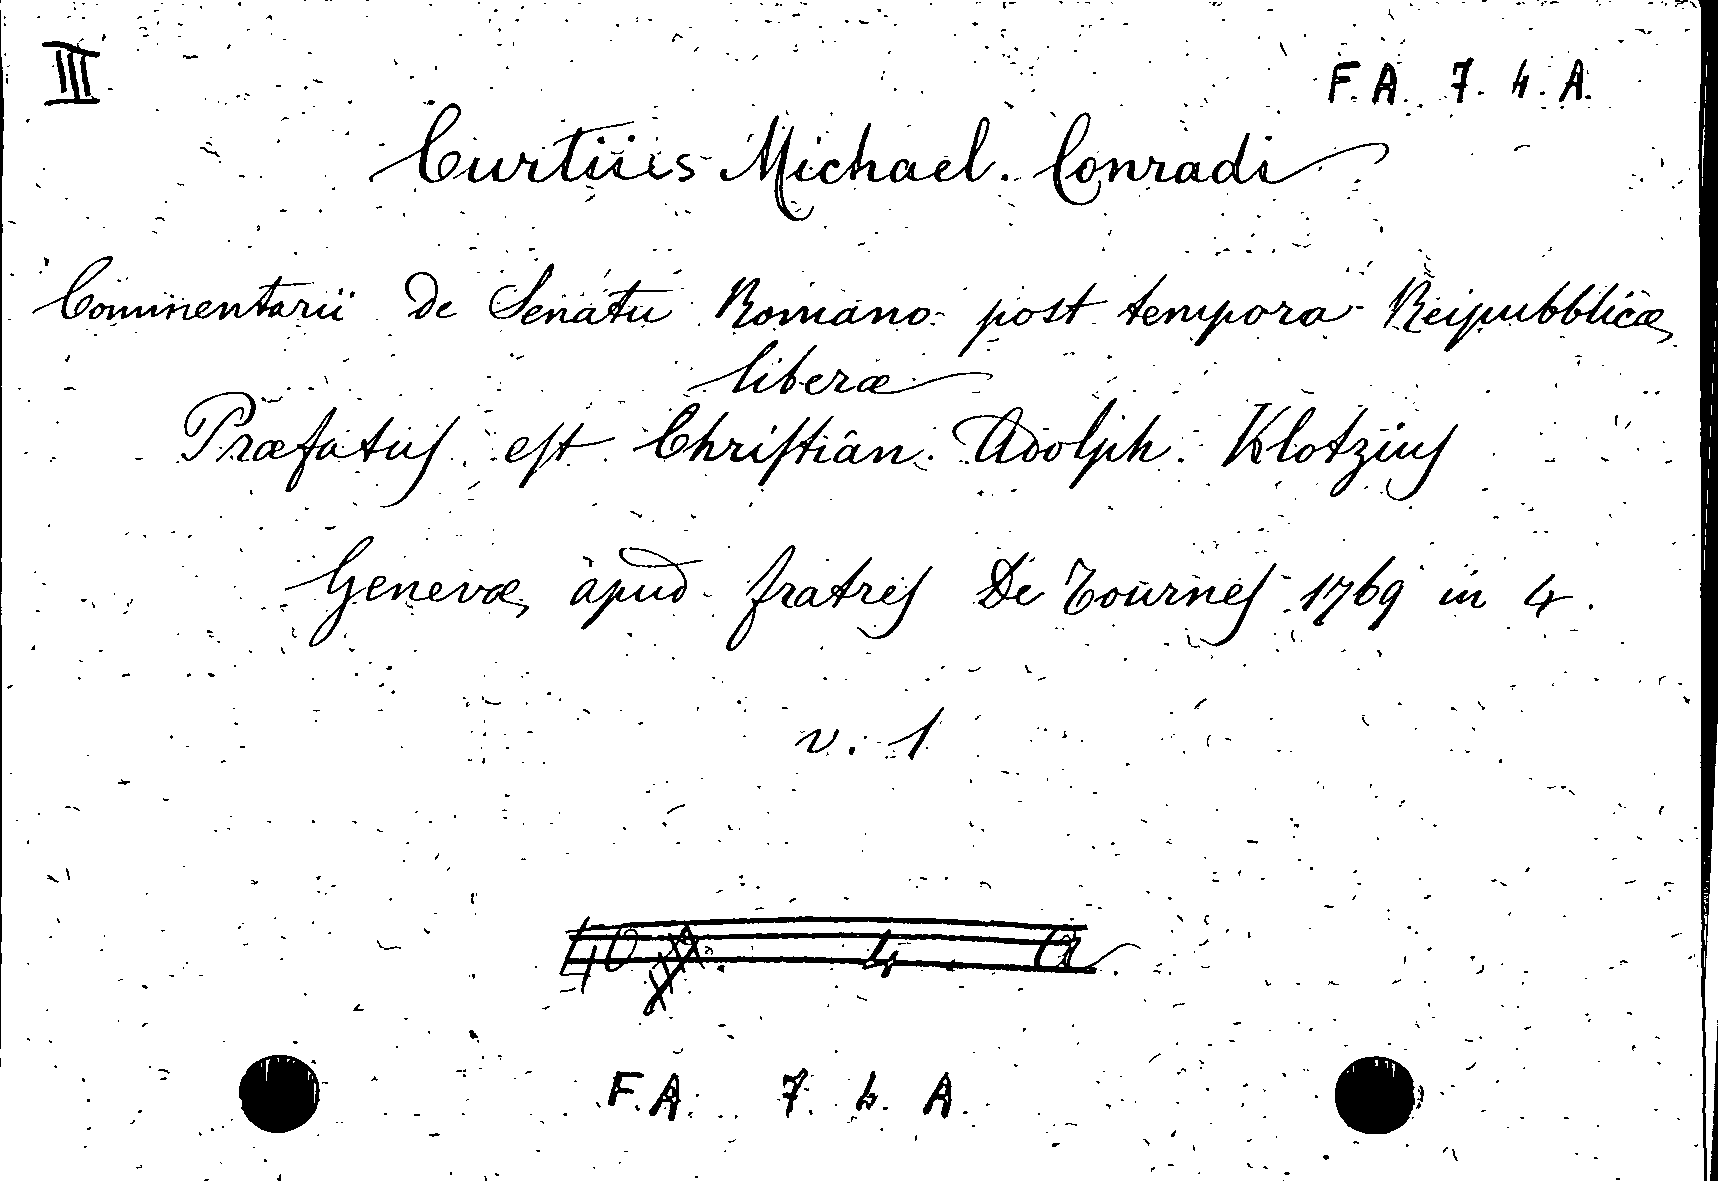 III
F. A. 7. 4. A.
Curtius Michael. Conradi
Commentarii de Senatu Romano post tempora Reipubblicæ
liberæ
Præfatuſ eſt Chriſtian. Adolph. Klotziuſ
Genevæ, apud fratreſ De Tourneſ 1769 in 4.
v. 1
40 4 a
F. A. 7. 4. A.